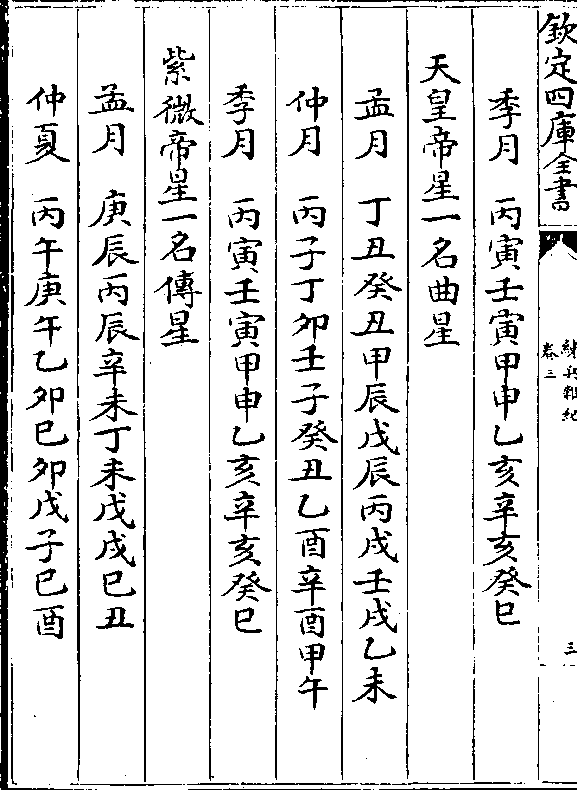 欽定四庫全書
練兵雜紀
卷三
三
季月 丙寅壬寅甲申乙亥辛亥癸巳
天皇帝星一名曲星
孟月 丁丑癸丑甲辰戊辰丙戌壬戌乙未
仲月 丙子丁卯壬子癸丑乙酉辛酉甲午
季月 丙寅壬寅甲申乙亥辛亥癸巳
紫微帝星一名傳星
孟月 庚辰丙辰辛未丁未戊戌巳丑
仲夏 丙午庚午乙卯巳卯戊子巳酉